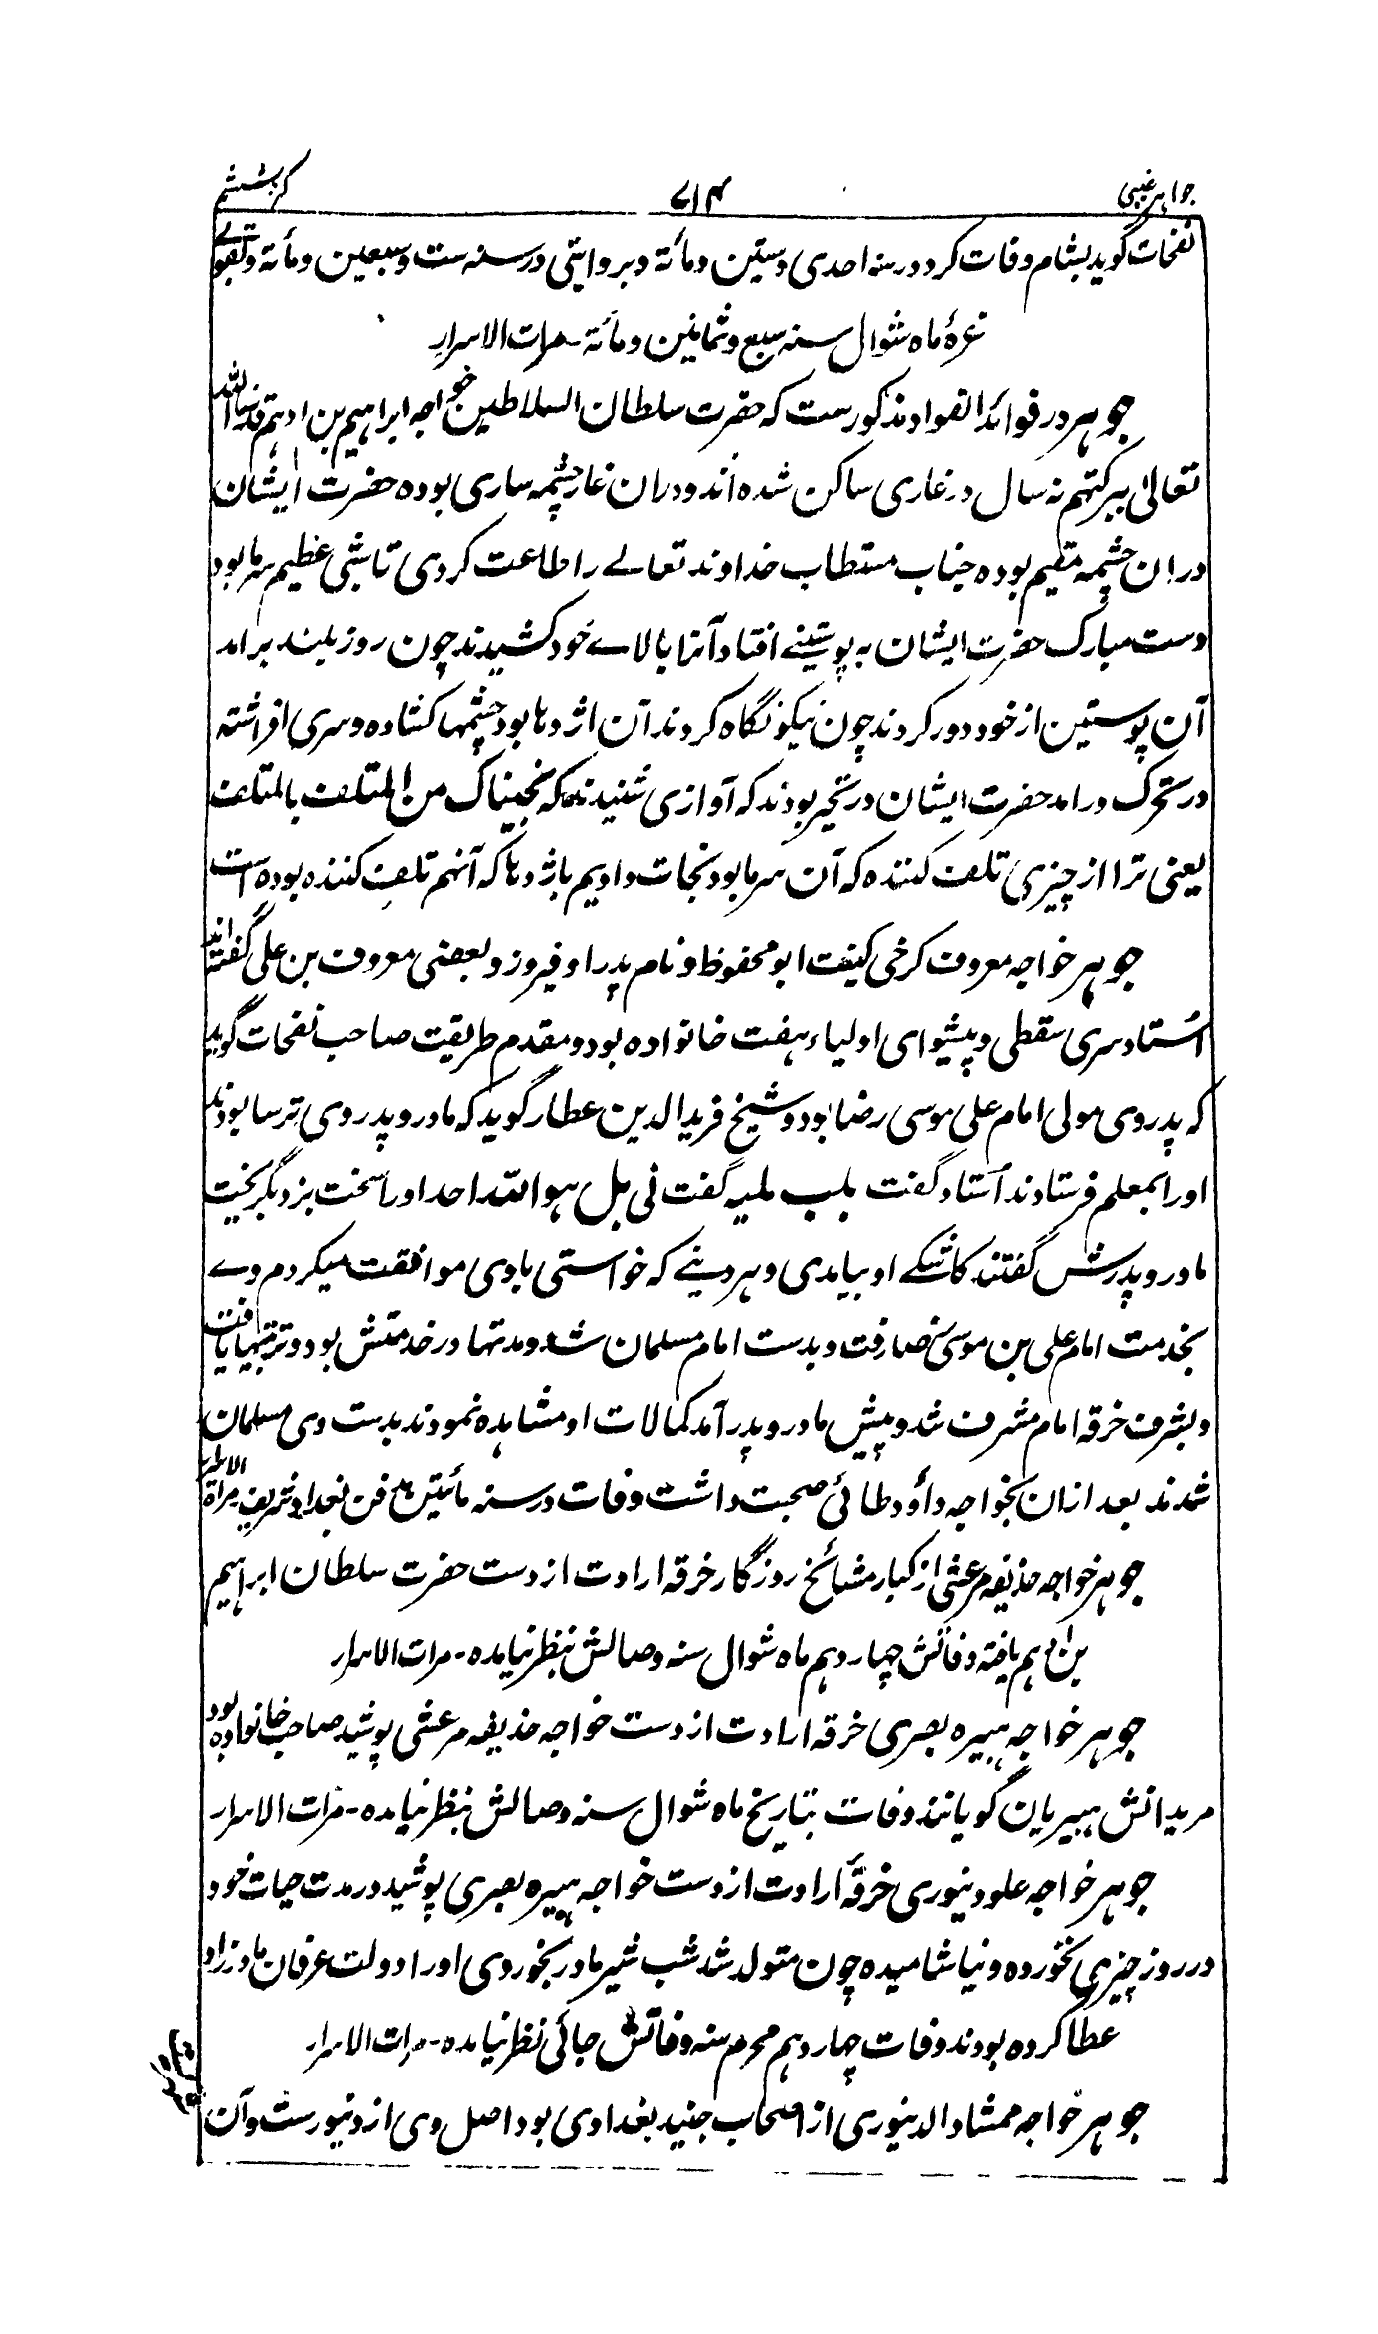 جواہر غیبی ۷۱۴ کرشمہ ششم
نفحات گوید بشام وفات کرد در سنہ احدی و ستین و مائة و بروایتی در سنہ ست و سبعین و مائة و بقولے
غرۂ ماہ شوال سنہ سبع و ثمانین و مائة ۔ مرات الاسرار
جوہر در فوائد الفواد مذکورست کہ حضرت سلطان السلاطین خواجہ ابراہیم بن ادہم قدسنا اللہ
تعالیٰ ببرکتہم نہ سال در غاری ساکن شدہ اند و دران غار چشمہ ساری بودہ حضرت ایشان
دران چشمہ مقیم بودہ جناب مستطاب خداوند تعالے را طاعت کردی تا شبی عظیم سرما بود
دست مبارک حضرت ایشان بہ پوستینے افتاد آنرا بالاے خود کشیدند چون روز بلند برامد
آن پوستین از خود دور کردند چون نیکو نگاہ کردند آن اژدہا بود چشمہا کشادہ و سری افراشتہ
در تحرک درامد حضرت ایشان در تحیر بودند کہ آوازی شنیدند کہ نجیناک من المتلف بالمتلف
یعنی ترا از چیزی تلف کنندہ کہ آن سرما بود نجات دادیم باژدہا کہ آنہم تلف کنندہ بودہ است
جوہر خواجہ معروف کرخی کنیت ابو محفوظ و نام پدر او فیروز و بعضی معروف بن علی گفتہ اند
استاد سری سقطی و پیشوای اولیاء ہفت خانوادہ بود و مقدم طریقت صاحب نفحات گوید
کہ پدر وی مولی امام علی موسی رضا بود و شیخ فرید الدین عطار گوید کہ مادر و پدر وی ترسا بودند
اورا بمعلم فرستادند استاد گفت گفت نی بل ہو اللہ احد اورا سخت بزد بگریخت
مادر و پدرش گفتند کاشکے او بیامدی و ہر دینے کہ خواستی باوی موافقت میکردم وے
بخدمت امام علی بن موسی رضا رفت و بدست امام مسلمان شد و مدتہا در خدمتش بود و تربیتہا یافت
و بشرف خرقہ امام مشرف شد و پیش مادر و پدر آمد کمالات او مشاہدہ نمودند بدست وی مسلمان
شدند بعد ازان بخواجہ داؤد طائی صحبت داشت وفات در سنہ مائتین مدفن بغداد شریف مراة الاسرار
جوہر خواجہ حذیفہ مرعشی از کبار مشائخ روزگار خرقہ ارادت از دست حضرت سلطان ابراہیم
بن ادہم یافتہ وفاتش چہاردہم ماہ شوال سنہ وصالش بنظر نیامدہ ۔ مرات الاسرار
جوہر خواجہ ہبیرہ بصری خرقہ ارادت از دست خواجہ حذیفہ مرعشی پوشید صاحب خانوادہ بود
مریدانش ہبیریان گویانند وفات بتاریخ ماہ شوال سنہ وصالش بنظر نیامدہ ۔ مرات الاسرار
جوہر خواجہ علو دینوری خرقہ ارادت از دست خواجہ ہبیرہ بصری پوشید در مدت حیات خود
در روز چیزی نخوردہ و نیاشامیدہ چون متولد شد شب شیر مادر بخوردی اورا دولت عرفان مادرزاد
عطا کردہ بودند وفات چہاردہم محرم سنہ وفاتش جائی نظر نیامدہ ۔ مرات الاسرار
جوہر خواجہ ممشاد الدینوری از اصحاب جنید بغدادی بود اصل وی از دینورست و آن